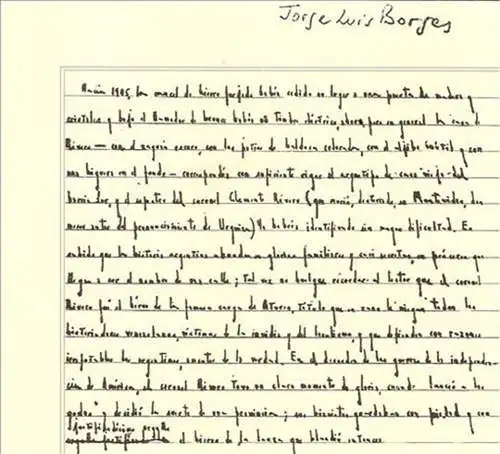 Jorge Luis Borges
Hacia 1905, la cancel de hierro forjado había cedido su lugar a una puerta de madera y
cristales y bajo el llamador de bronce había un timbre eléctrico, ahora, pero en general la casa de
Rivero — con el zaguán escaso, con los patios de baldosa colorada, con el aljibe inútil y con
una higuera en el fondo — correspondía con suficiente rigor al arquetipo de casa vieja del
barrio Sur, y el espectro del coronel Clement Rivero (que murió, desterrado, en Montevideo, dos
meses antes del pronunciamiento de Urquiza) la habría identificado sin mayor dificultad. Es
sabido que las historias argentinas abundan en glorias familiares y casi secretas, en próceres que
llegan a ser el nombre de una calle; tal vez no huelgue recordar al lector que el coronel
Rivero fué el héroe de la famosa carga de
historiadores venezolanos, víctimas de la envidia y del localismo, y que defienden con razones
irrefutables los argentinos, amantes de la verdad. En el decurso de las guerras de la independen-
cia de América, el coronel Rivero tuvo un claro momento de gloria, cuando lanzó a los
godos y decidió la suerte de una provincia; sus biznietos guardaban con piedad y con
justificadísimo orgullo
el hierro de la lanza que blandió entonces